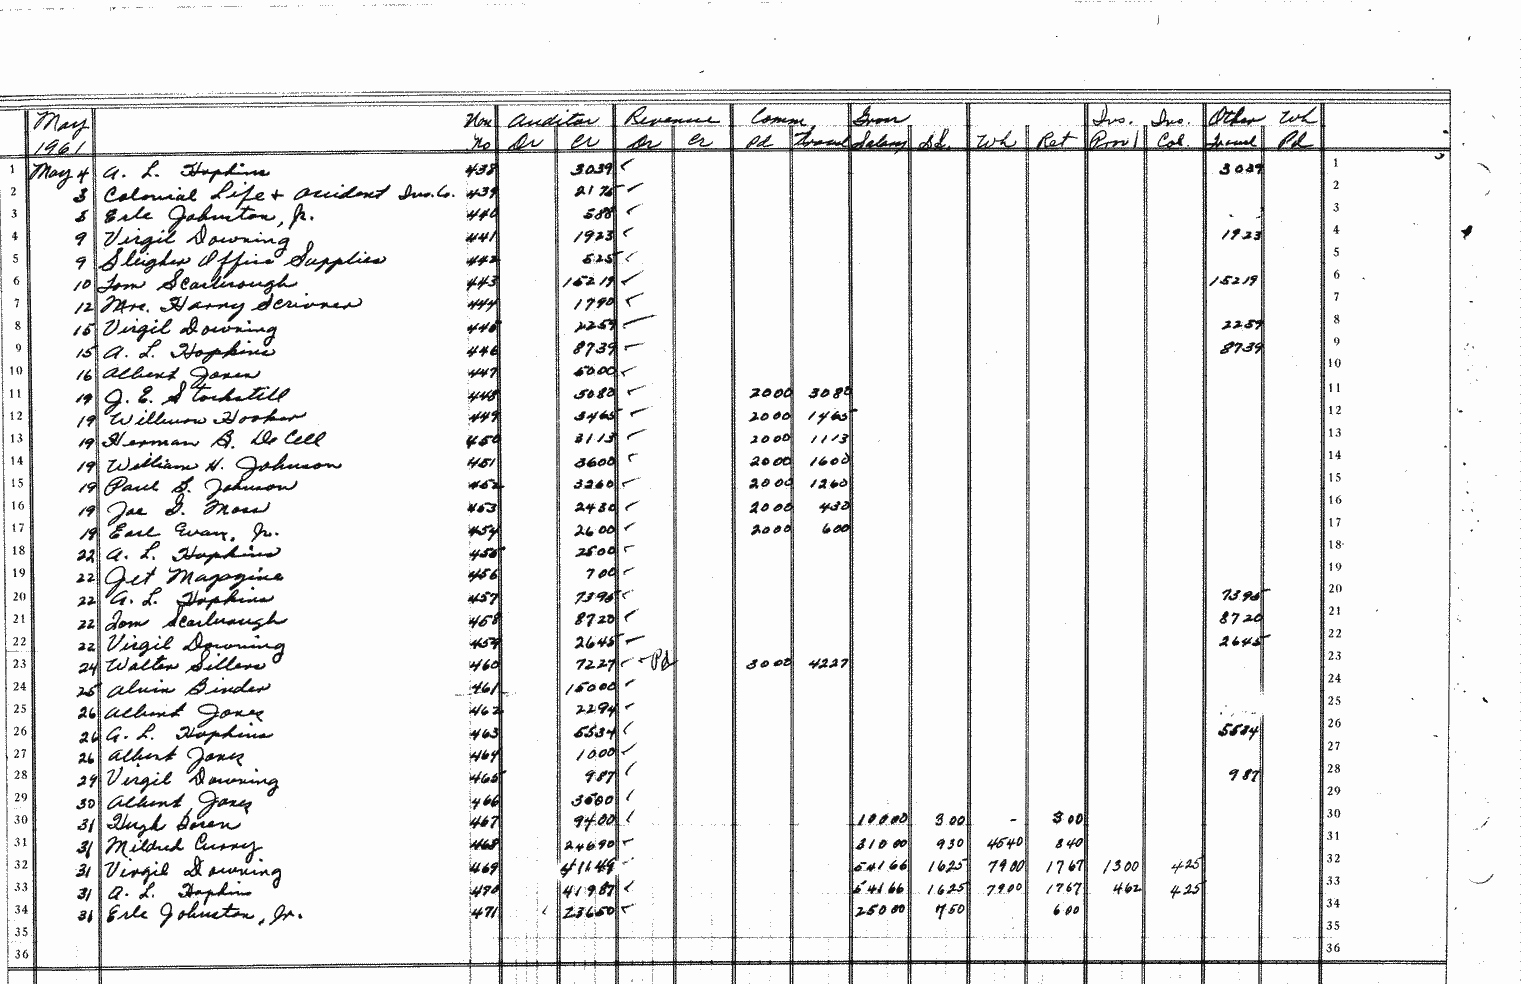 May Vou Auditor Revenue Comm. Gross Ins. Ins. Other Wh
1961 No Dr Cr Dr Cr Pd Travel Salary S.S. Wh Ret Prov Col. Travel Pd
1 May 4 A. L. Hopkins 438 3039 ✓ 3039 1
2 8 Colonial Life + Accident Ins. Co. 439 2176 ✓ 2
3 8 Erle Johnston, Jr. 440 588 ✓ 3
4 9 Virgil Downing 441 1923 ✓ 1923 4
5 9 Office Supplies 442 525 ✓ 5
6 10 Tom Scarbrough 443 15219 ✓ 15219 6
7 12 Mrs. Harry Scrivner 444 1790 ✓ 7
8 15 Virgil Downing 445 2259 ✓ 2259 8
9 15 A. L. Hopkins 446 8739 ✓ 8739 9
10 16 Albert Jones 447 5000 ✓ 10
11 19 J. E. Stockstill 448 5080 ✓ 2000 3080 11
12 19 Hooker 449 3465 ✓ 2000 1465 12
13 19 Herman B. DeCell 450 3113 ✓ 2000 1113 13
14 19 William H. Johnson 451 3600 ✓ 2000 1600 14
15 19 Paul B. Johnson 452 3260 ✓ 2000 1260 15
16 19 Joe G. Moss 453 2430 ✓ 2000 430 16
17 19 Earl Evans, Jr. 454 2600 ✓ 2000 600 17
18 22 A. L. Hopkins 455 2500 ✓ 18
19 22 Jet Magazine 456 700 ✓ 19
20 22 A. L. Hopkins 457 7395 ✓ 7395 20
21 22 Tom Scarbrough 458 8720 ✓ 8720 21
22 22 Virgil Downing 459 2645 ✓ 2645 22
23 24 Walter Sillers 460 7227 ✓ Pd 3000 4227 23
24 25 Alvin Binder 461 15000 ✓ 24
25 26 Albert Jones 462 2294 ✓ 25
26 26 A. L. Hopkins 463 5534 ✓ 5534 26
27 26 Albert Jones 464 1000 ✓ 27
28 29 Virgil Downing 465 987 ✓ 987 28
29 30 Albert Jones 466 3500 ✓ 29
30 31 Hugh Boren 467 9400 ✓ 10000 300 - 300 30
31 31 Mildred Curry 468 24690 ✓ 31000 930 4540 840 31
32 31 Virgil Downing 469 41149 54166 1625 7900 1767 1300 425 32
33 31 A. L. Hopkins 470 41987 ✓ 54166 1625 7900 1767 462 425 33
34 31 Erle Johnston, Jr. 471 23650 ✓ 25000 750 600 34
35 35
36 36